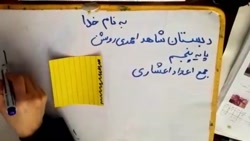 به نام خدا
دبستان شاهد احمدی روشن
پایه پنجم
جمع اعداد اعشاری